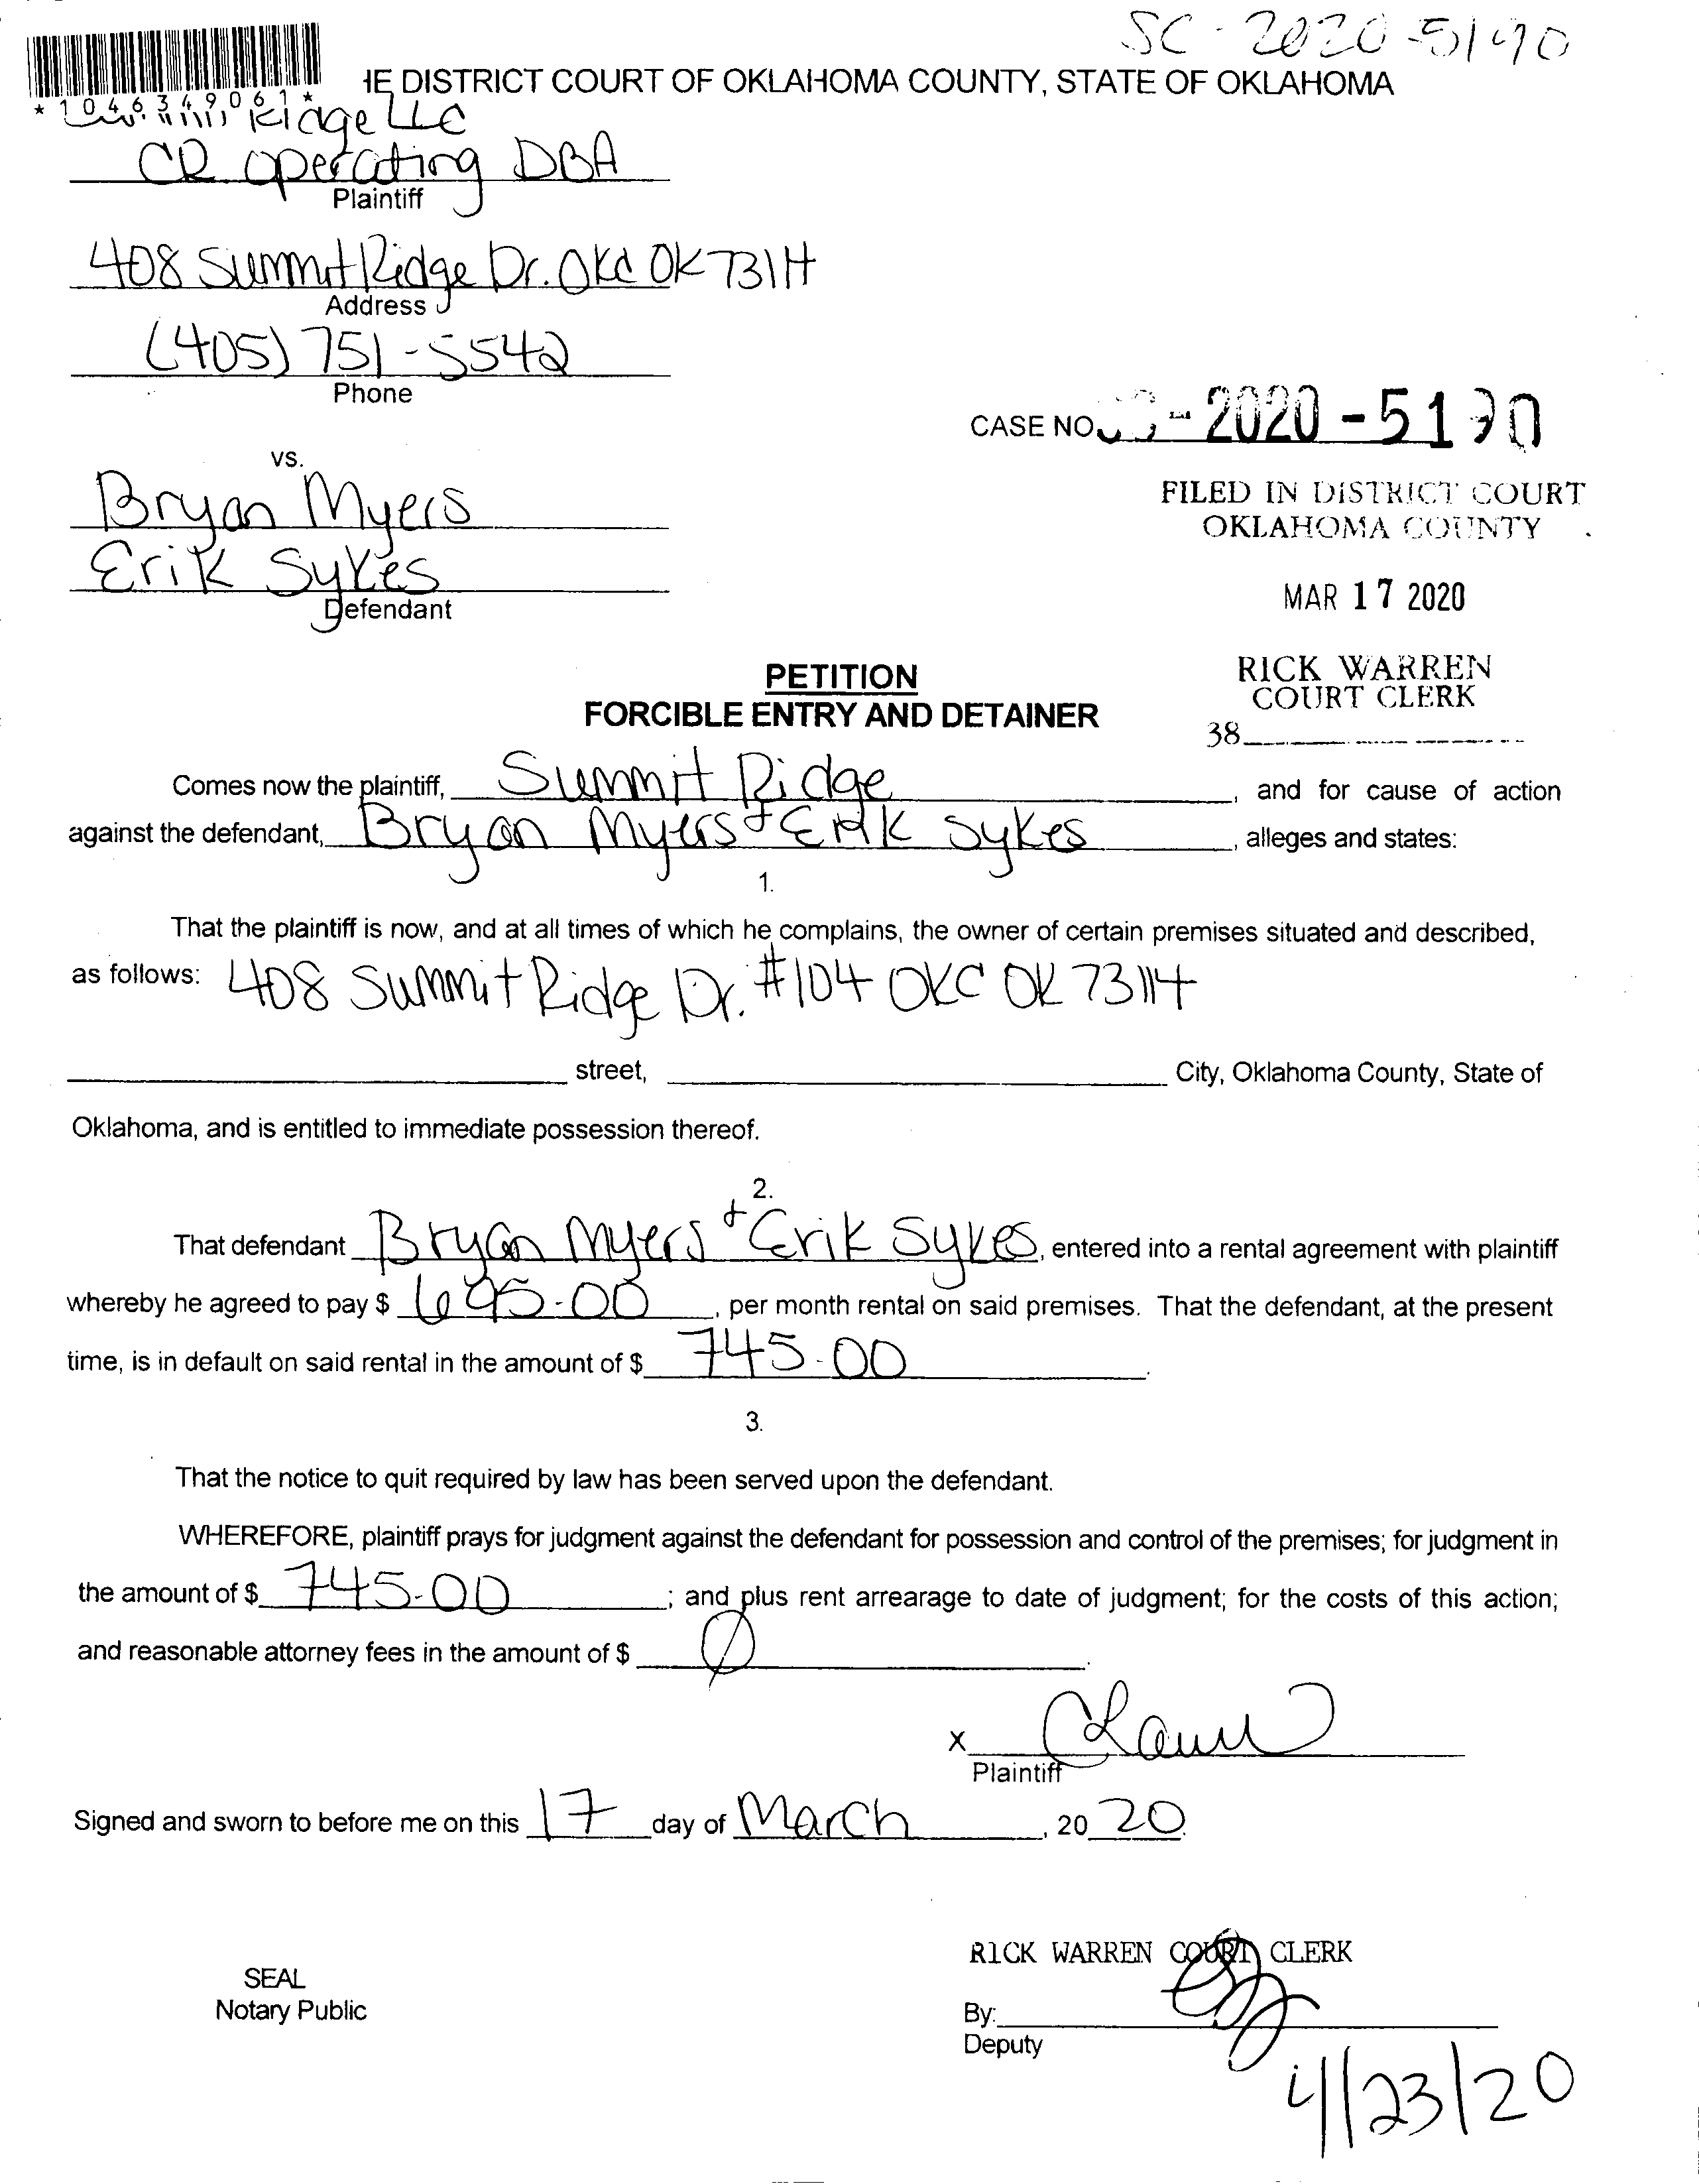 SC-2020-5190
*1046349061*
IE DISTRICT COURT OF OKLAHOMA COUNTY, STATE OF OKLAHOMA
Ridge LLC
CR Operating DBA
Plaintiff
408 Summit Ridge Dr. OKC OK 73114
Address
(405) 751-5542
Phone
CASE NO. -2020-5190
vs.
Bryan Myers
Erik Sykes
Defendant
FILED IN DISTRICT COURT
OKLAHOMA COUNTY
MAR 17 2020
RICK WARREN
COURT CLERK
38
PETITION
FORCIBLE ENTRY AND DETAINER
Comes now the plaintiff, Summit Ridge, and for cause of action
against the defendant, Bryan Myers + Erik Sykes, alleges and states:
1.
That the plaintiff is now, and at all times of which he complains, the owner of certain premises situated and described,
as follows: 408 Summit Ridge Dr. #104 OKC OK 73114
street, City, Oklahoma County, State of
Oklahoma, and is entitled to immediate possession thereof.
2.
That defendant Bryan Myers + Erik Sykes, entered into a rental agreement with plaintiff
whereby he agreed to pay $ 695.00, per month rental on said premises. That the defendant, at the present
time, is in default on said rental in the amount of $ 745.00.
3.
That the notice to quit required by law has been served upon the defendant.
WHEREFORE, plaintiff prays for judgment against the defendant for possession and control of the premises; for judgment in
the amount of $ 745.00; and plus rent arrearage to date of judgment; for the costs of this action;
and reasonable attorney fees in the amount of $ Ø.
X
Plaintiff
Signed and sworn to before me on this 17 day of March, 20 20.
RICK WARREN COURT CLERK
SEAL
Notary Public
By:
Deputy
4/23/20